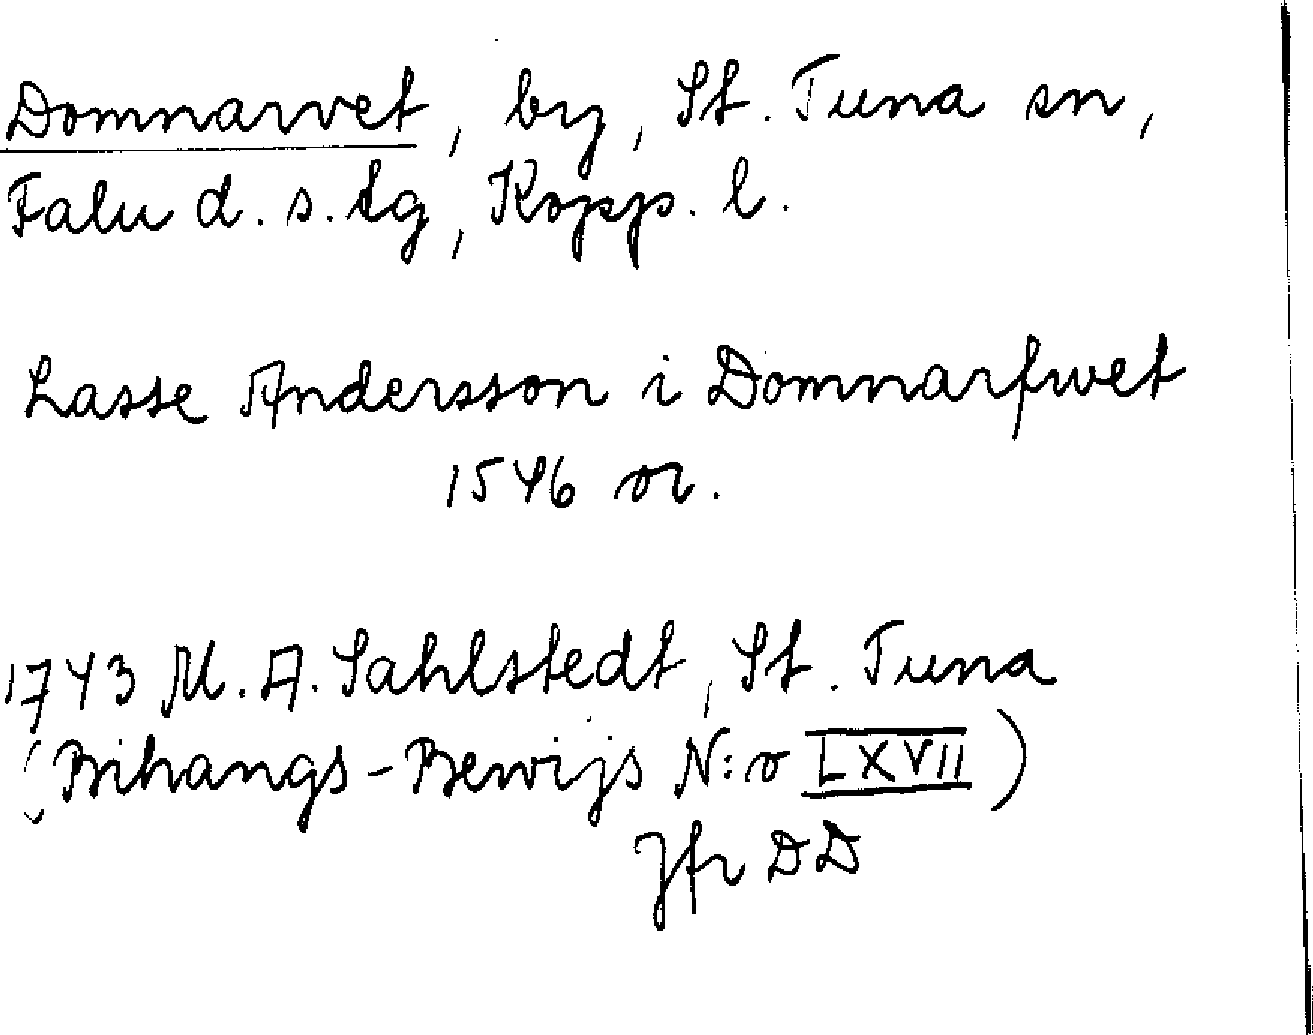 Domnarvet, by, St. Tuna sn,
Falu d. s. tg, Kopp. l.
Lasse Andersson i Domnarfwet
1546 or.
1743 M. A. Sahlstedt, St. Tuna
(Bihangs-Bewijs N:o LXVII)
Jfr DD